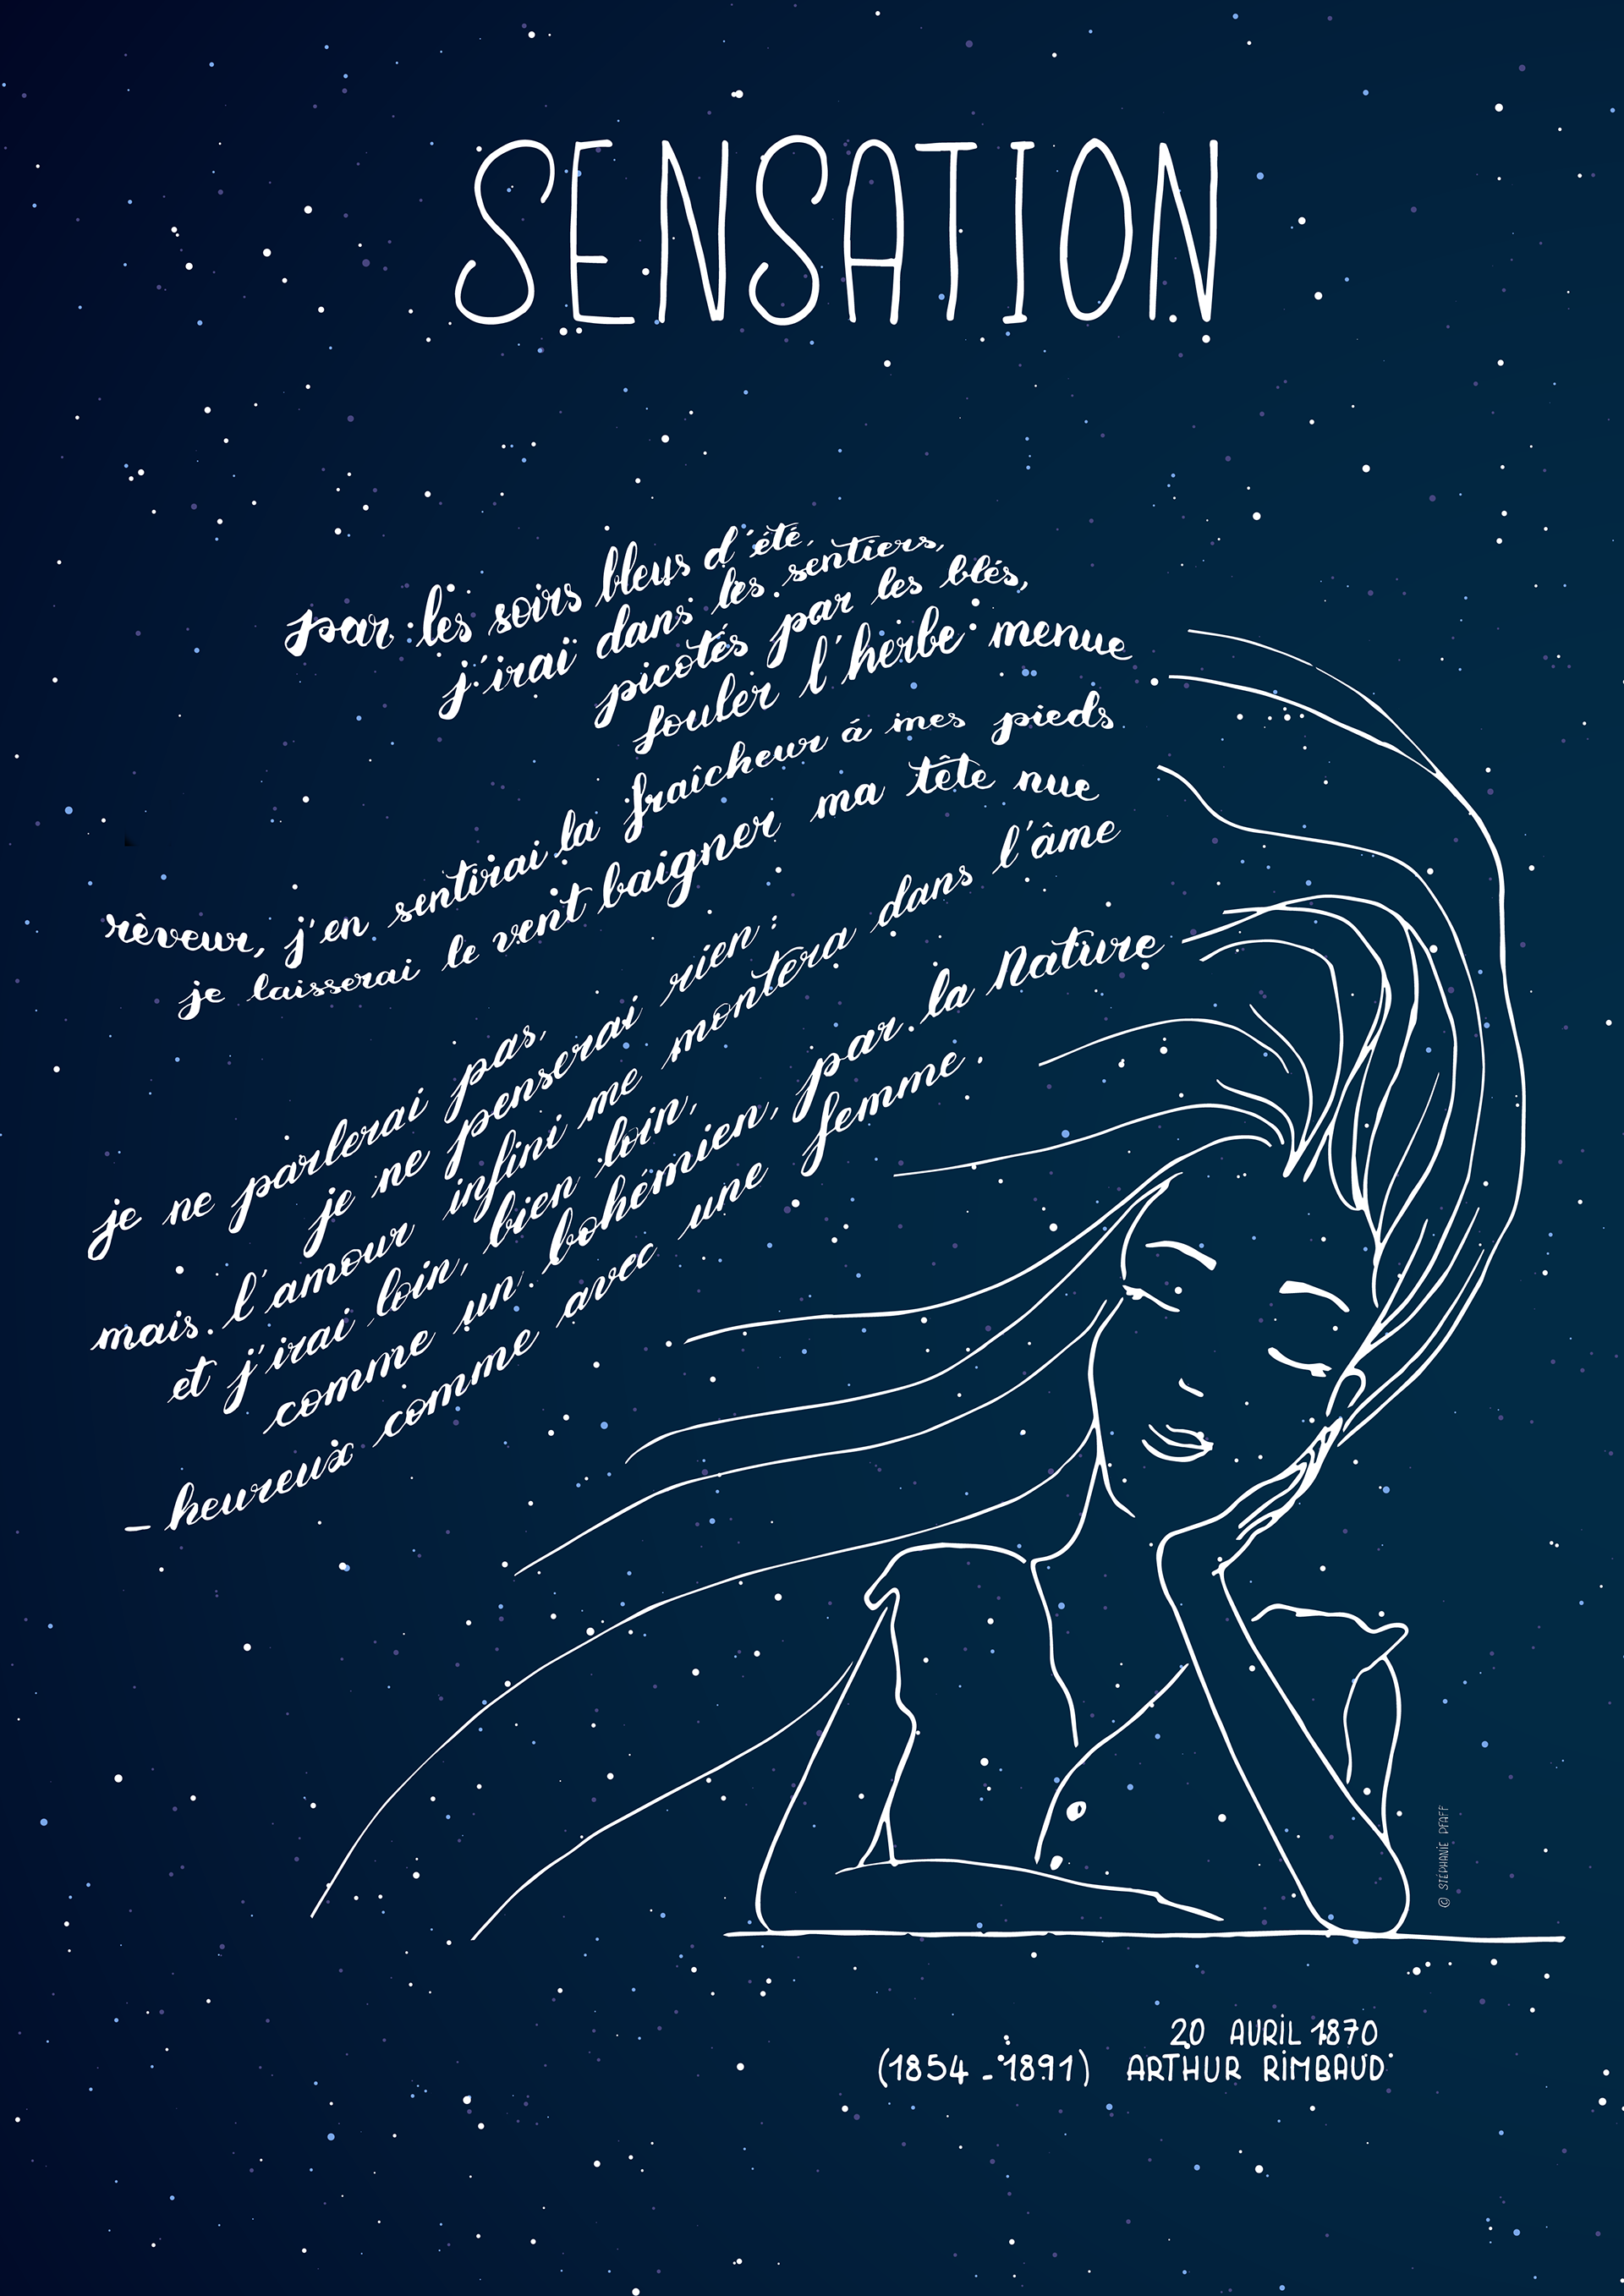 SENSATION
par les soirs bleus d'été,
j'irai dans les sentiers,
picotés par les blés,
fouler l'herbe menue
rêveur, j'en sentirai la fraîcheur à mes pieds
je laisserai le vent baigner ma tête nue
je ne parlerai pas,
je ne penserai rien :
mais l'amour infini me montera dans l'âme
et j'irai loin, bien loin,
comme un bohémien, par la Nature
- heureux comme avec une femme.
© STÉPHANIE PFAFF
20 AVRIL 1870
(1854 - 1891) ARTHUR RIMBAUD